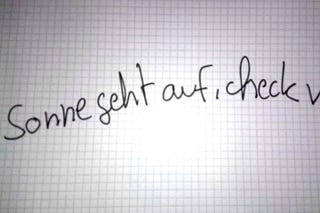 Sonne geht auf, check